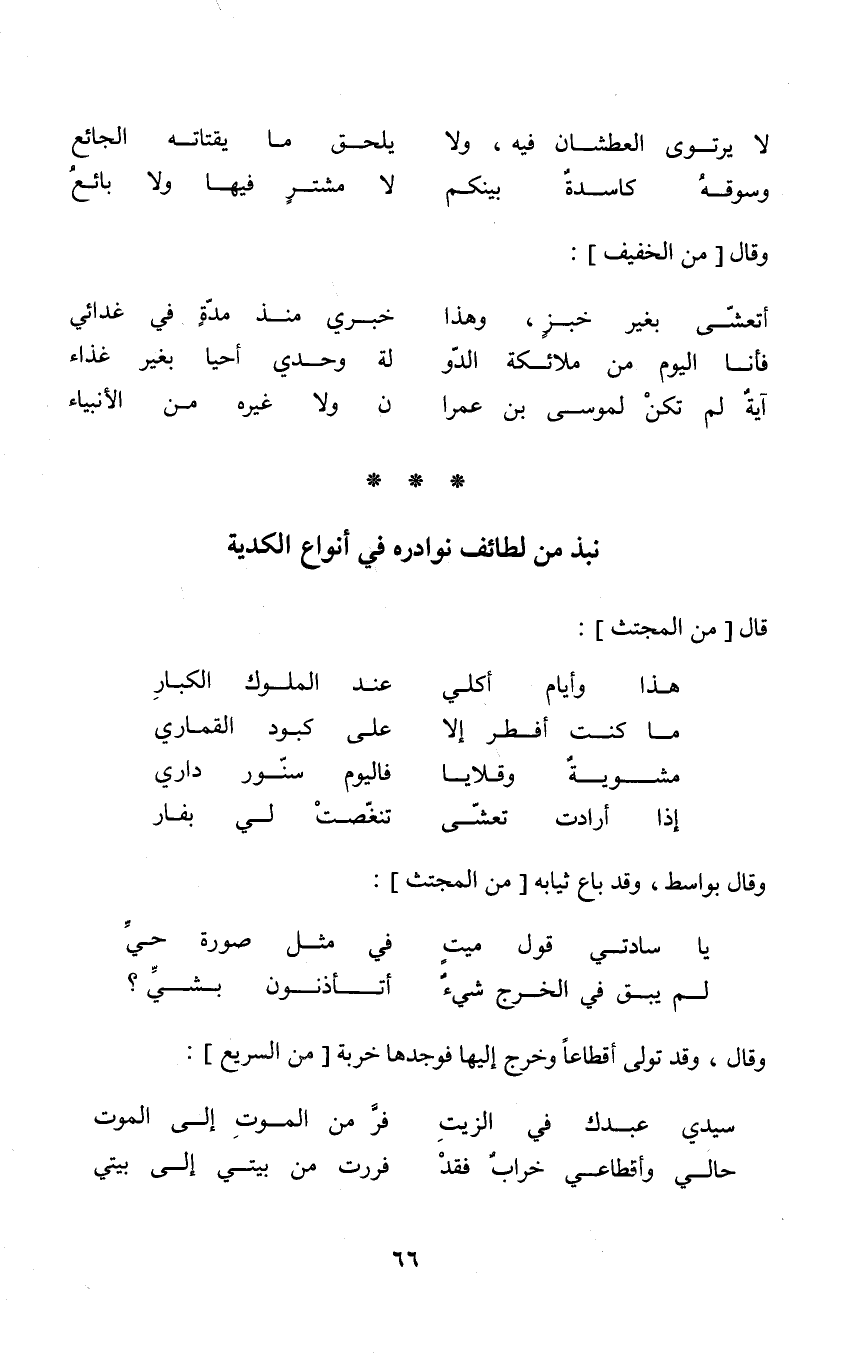 لا يرتـوى العطشـان فيه ، ولا يلحـق ما يقتاتـه الجائع
وسوقـهُ كاسـدةٌ بينكـم لا مشتـرٍ فيهـا ولا بائـعُ
وقال [ من الخفيف ] :
أتعشّـى بغير خبـزٍ ، وهذا خبـري منـذ مدّةٍ في غدائي
فأنـا اليوم من ملائـكة الدّو لة وحـدي أحيا بغير غذاء
آيةٌ لم تكنْ لموسـى بن عمرا ن ولا غيره مـن الأنبياء
* * *
نبذ من لطائف نوادره في أنواع الكدية
قال [ من المجتث ] :
هـذا وأيام أكلي عنـد الملـوك الكبـارِ
مـا كنـت أفـطر إلا علـى كبـود القمـاري
مشـويـةٌ وقـلايـا فاليوم سنّـور داري
إذا أرادت تعشّـى تنغّصـتْ لـي بفـار
وقال بواسط ، وقد باع ثيابه [ من المجتث ] :
يا سادتـي قول ميتٍ في مثـل صورة حـيِّ
لـم يبـق في الخـرج شيءٌ أتـأذنـون بشـيِّ ؟
وقال ، وقد تولى أقطاعاً وخرج إليها فوجدها خربة [ من السريع ] :
سيدي عبـدك في الزيتِ فرَّ من المـوتِ إلـى الموت
حالـي وأقطاعـي خرابٌ فقدْ فررت من بيتـي إلـى بيتي
٦٦